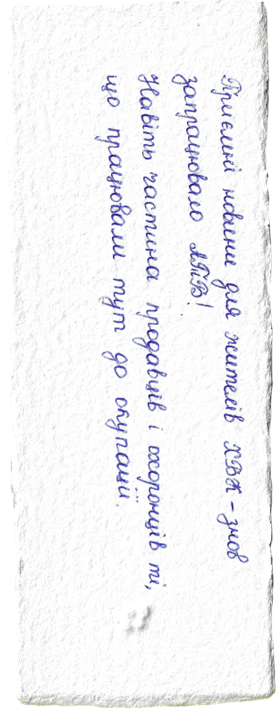 Приємні новини для жителів ХВЖ - знов
запрацювало АТБ!
Навіть частина продавців і охоронців ті,
що працювали тут до окупації.